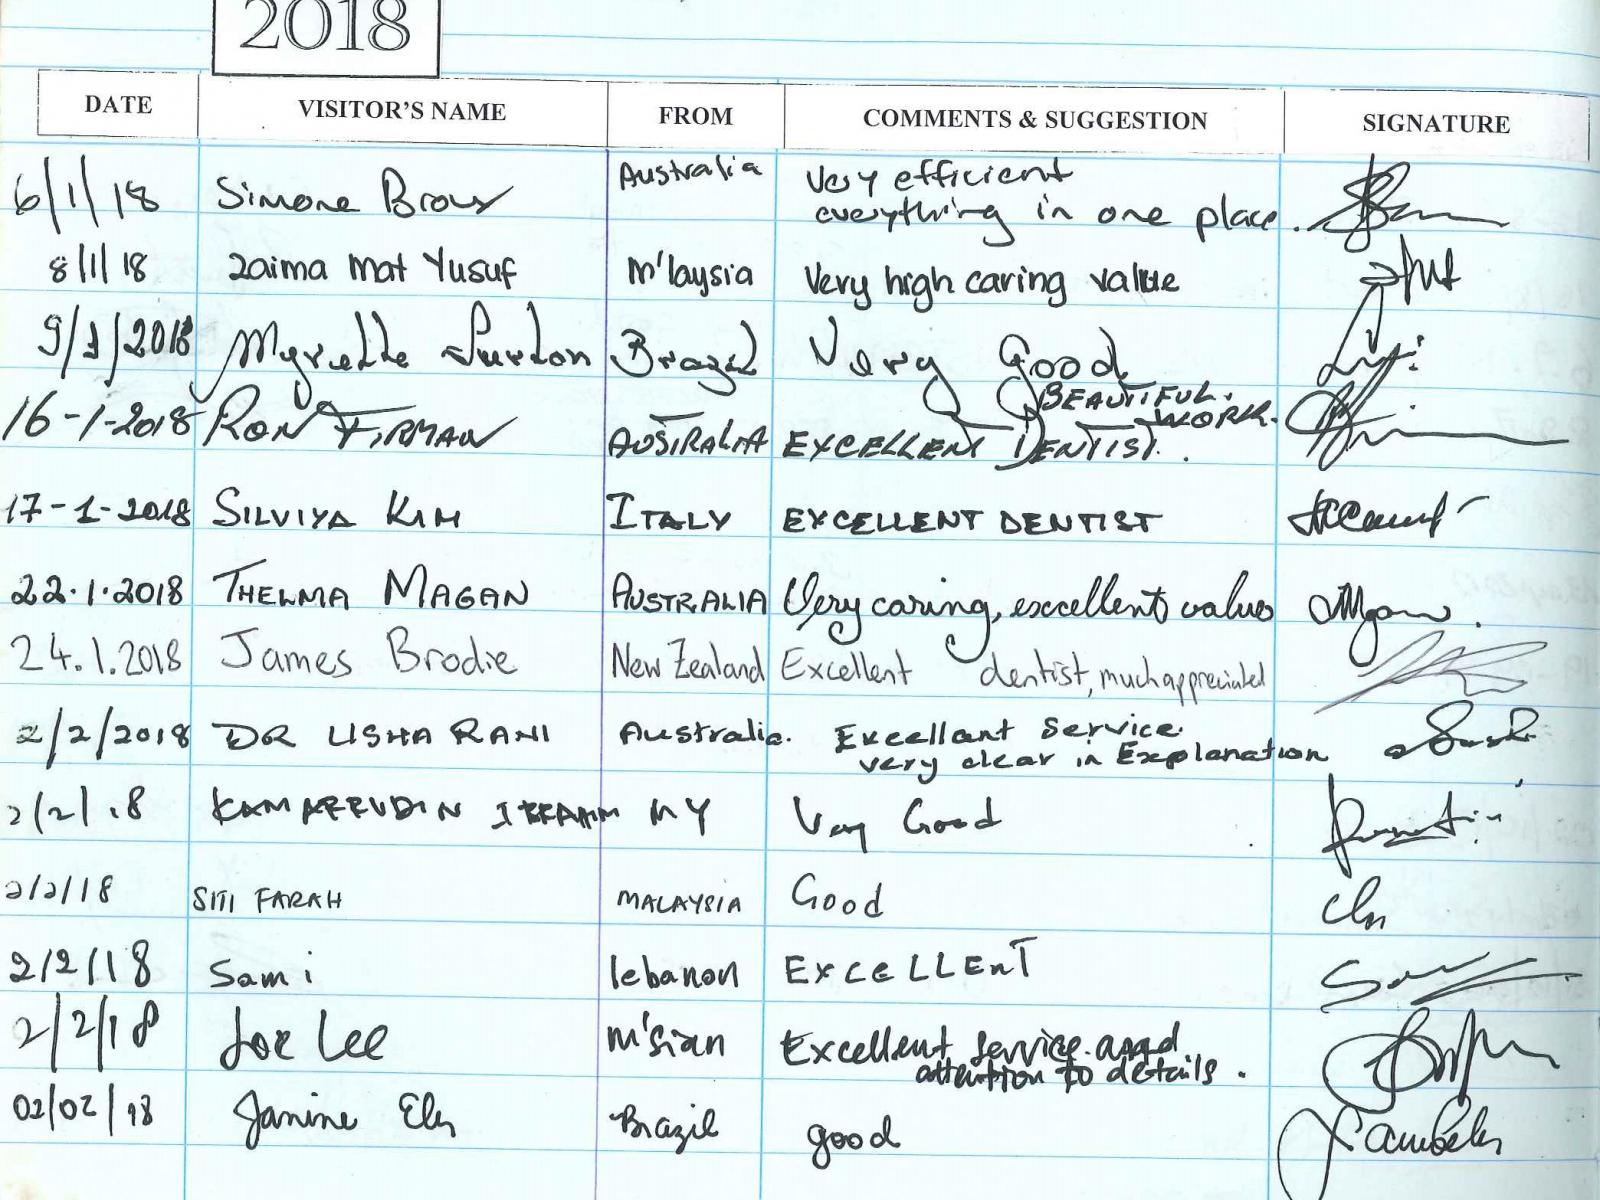 2018
DATE VISITOR'S NAME FROM COMMENTS & SUGGESTION SIGNATURE
6/1/18 Simone Australia Very efficient
everything in one place.
8/1/18 Zaima Mat Yusuf M'laysia Very high caring value
9/1/2018 Brazil Very Good
16-1-2018 RON FIRMAN AUSTRALIA EXCELLENT DENTIST. BEAUTIFUL.
WORK.
17-1-2018 SILVIYA KIM ITALY EXCELLENT DENTIST
22.1.2018 THELMA MAGAN AUSTRALIA Very caring, excellent value
24.1.2018 James Brodie New Zealand Excellent dentist, much appreciated
2/2/2018 DR USHA RANI Australia. Excellant Service
very clear in Explanation
2/2/18 KAMARRUDIN IBRAHIM MY Very Good
2/2/18 SITI FARAH MALAYSIA Good
2/2/18 Sami lebanon EXCELLENT
2/2/18 Joe Lee M'sian Excellent service and
attention to details.
02/02/18 Janine Brazil good